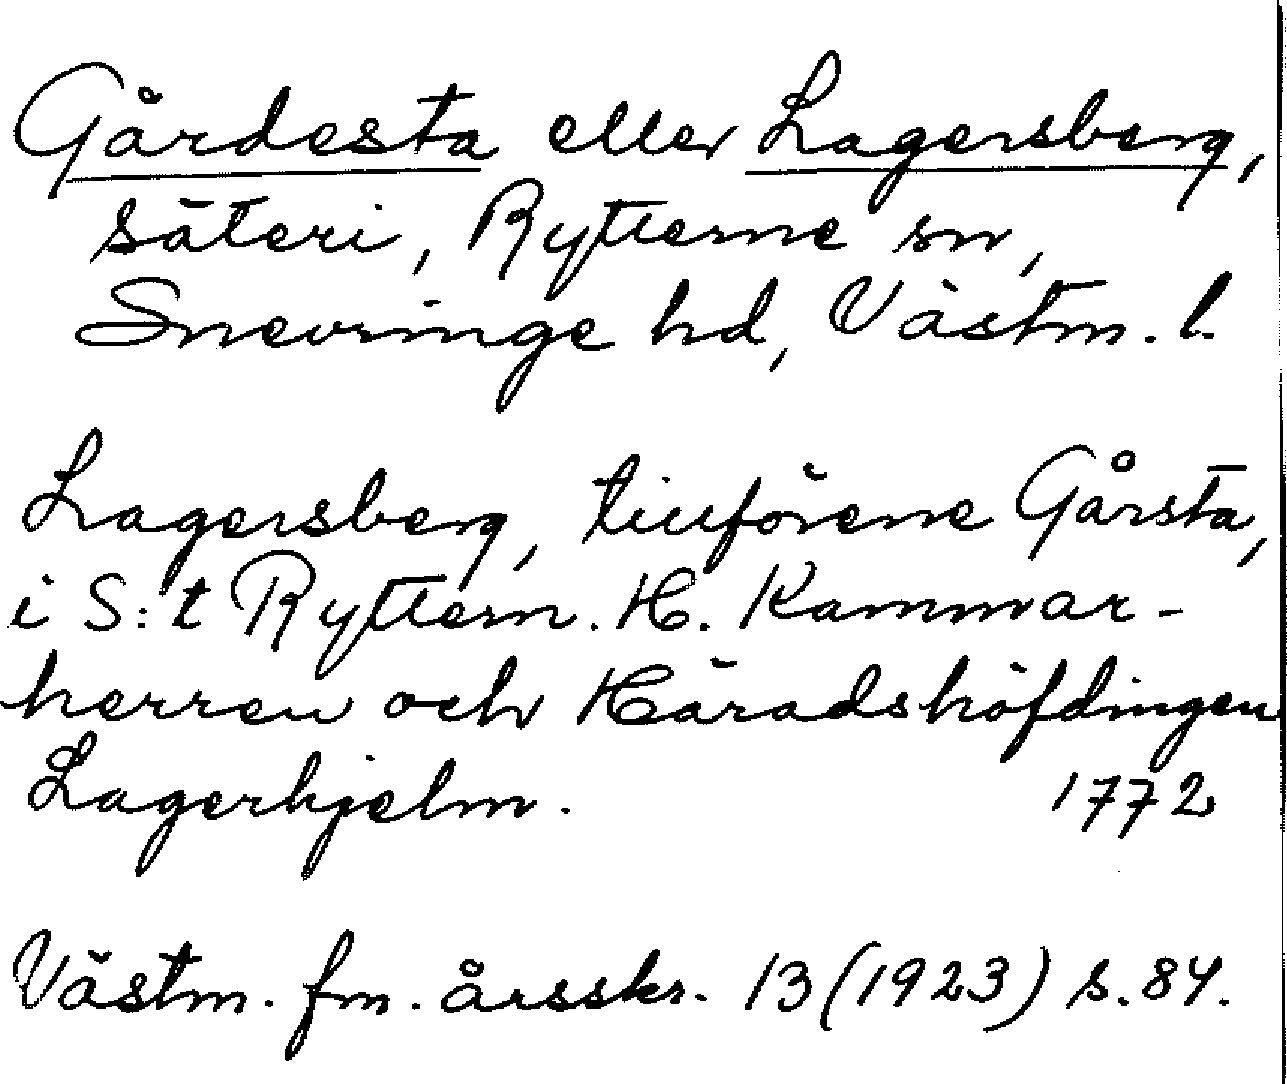 Gårdesta eller Lagersberg,
säteri, Rytterne sn,
Snevringe hd, Västm. l.
Lagersberg, tillförene Gårsta,
i S:t Ryttern. H. Kammar-
herren och Häradshöfdingen
Lagerhjelm. 1772
Västm. fm. årsskr. 13 (1923) s. 84.